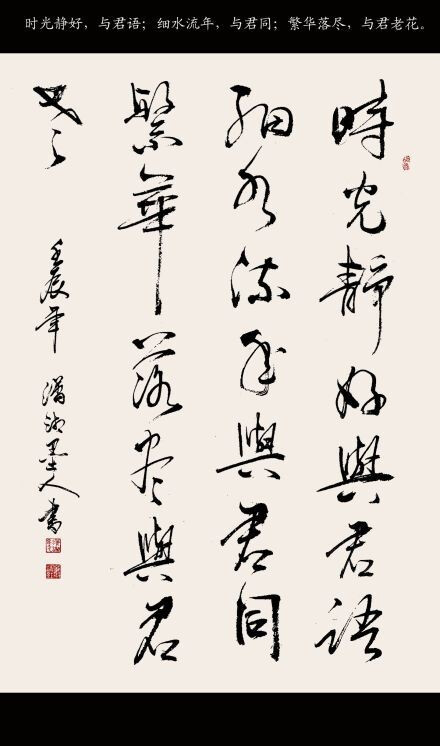 时光静好，与君语；细水流年，与君同；繁华落尽，与君老花。
時光靜好與君語
細水流年與君同
繁華落盡與君
老
壬辰年 瀟湘墨人書